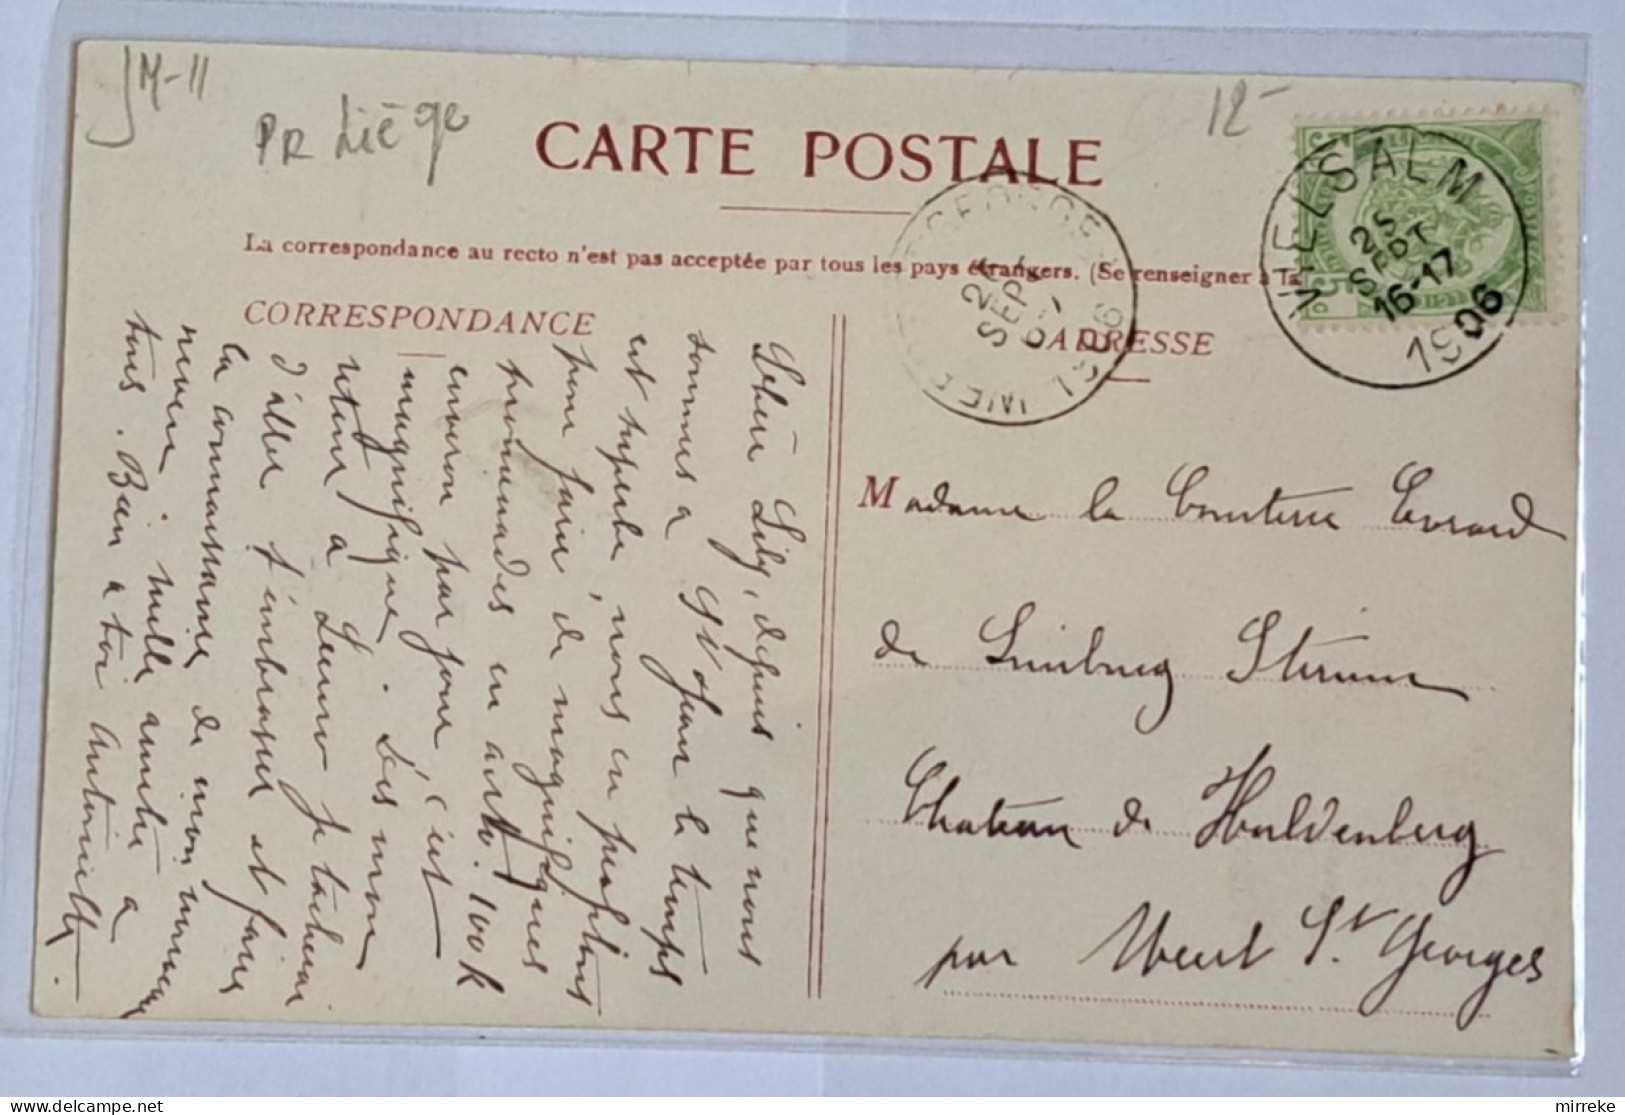 JM-11
PR Liège
12-
CARTE POSTALE
La correspondance au recto n'est pas acceptée par tous les pays étrangers. (Se renseigner à la
CORRESPONDANCE
ADRESSE
VIELSALM
25
SEPT
16-17
1906
SEPT
1906
Madame la Comtesse Evrard
de Limburg Stirum
Château de Huldenberg
par Weert St Georges
Chère Lily, depuis que nous
sommes à St Jean le temps
est superbe, nous en profitons
pour faire de magnifiques
promenades en auto. 100 k
environ par jour, c'est
magnifique. Dès mon
retour à je tacherai
d'aller t'embrasser et faire
la connaissance de mon nouveau
neveu, mille amitiés à
tous. Bien à toi Antoinette.
mirreke